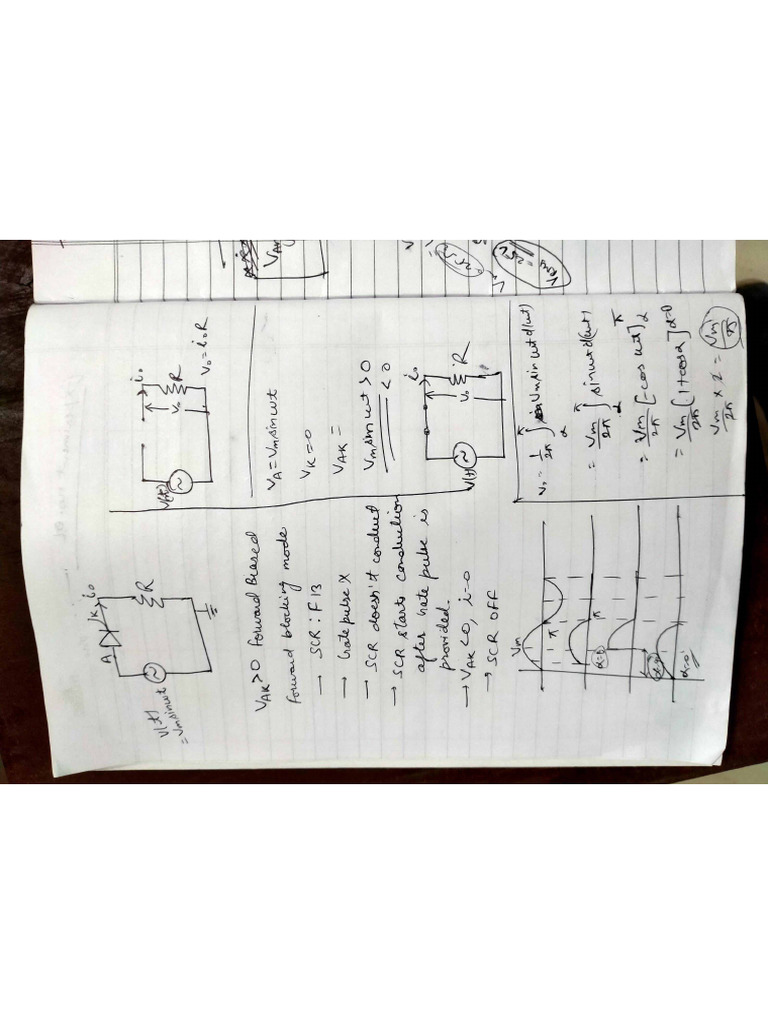 V(t)
= Vmsinwt
A
K
i₀
R
V_AK > 0 forward Biased
forward blocking mode
→ SCR : FB
→ Gate pulse X
→ SCR doesn't conduct
→ SCR starts conduction
after Gate pulse is
provided.
→ V_AK < 0, i→0
→ SCR OFF
Vm
π
π
α=0
V(t)
i₀
V₀
R
V₀ = i₀R
V_A = Vmsinwt
V_K = 0
V_AK =
Vmsinwt > 0
< 0
V(t)
i₀
V₀
R
V₀ = 1/2π ∫_α^π Vmsinwt d(wt)
= Vm/2π ∫_α^π sinwt d(wt)
= Vm/2π [-cos wt]_α^π
= Vm/2π [1+cosα] α=0
Vm/2π × 2 = Vm/π
V_AK